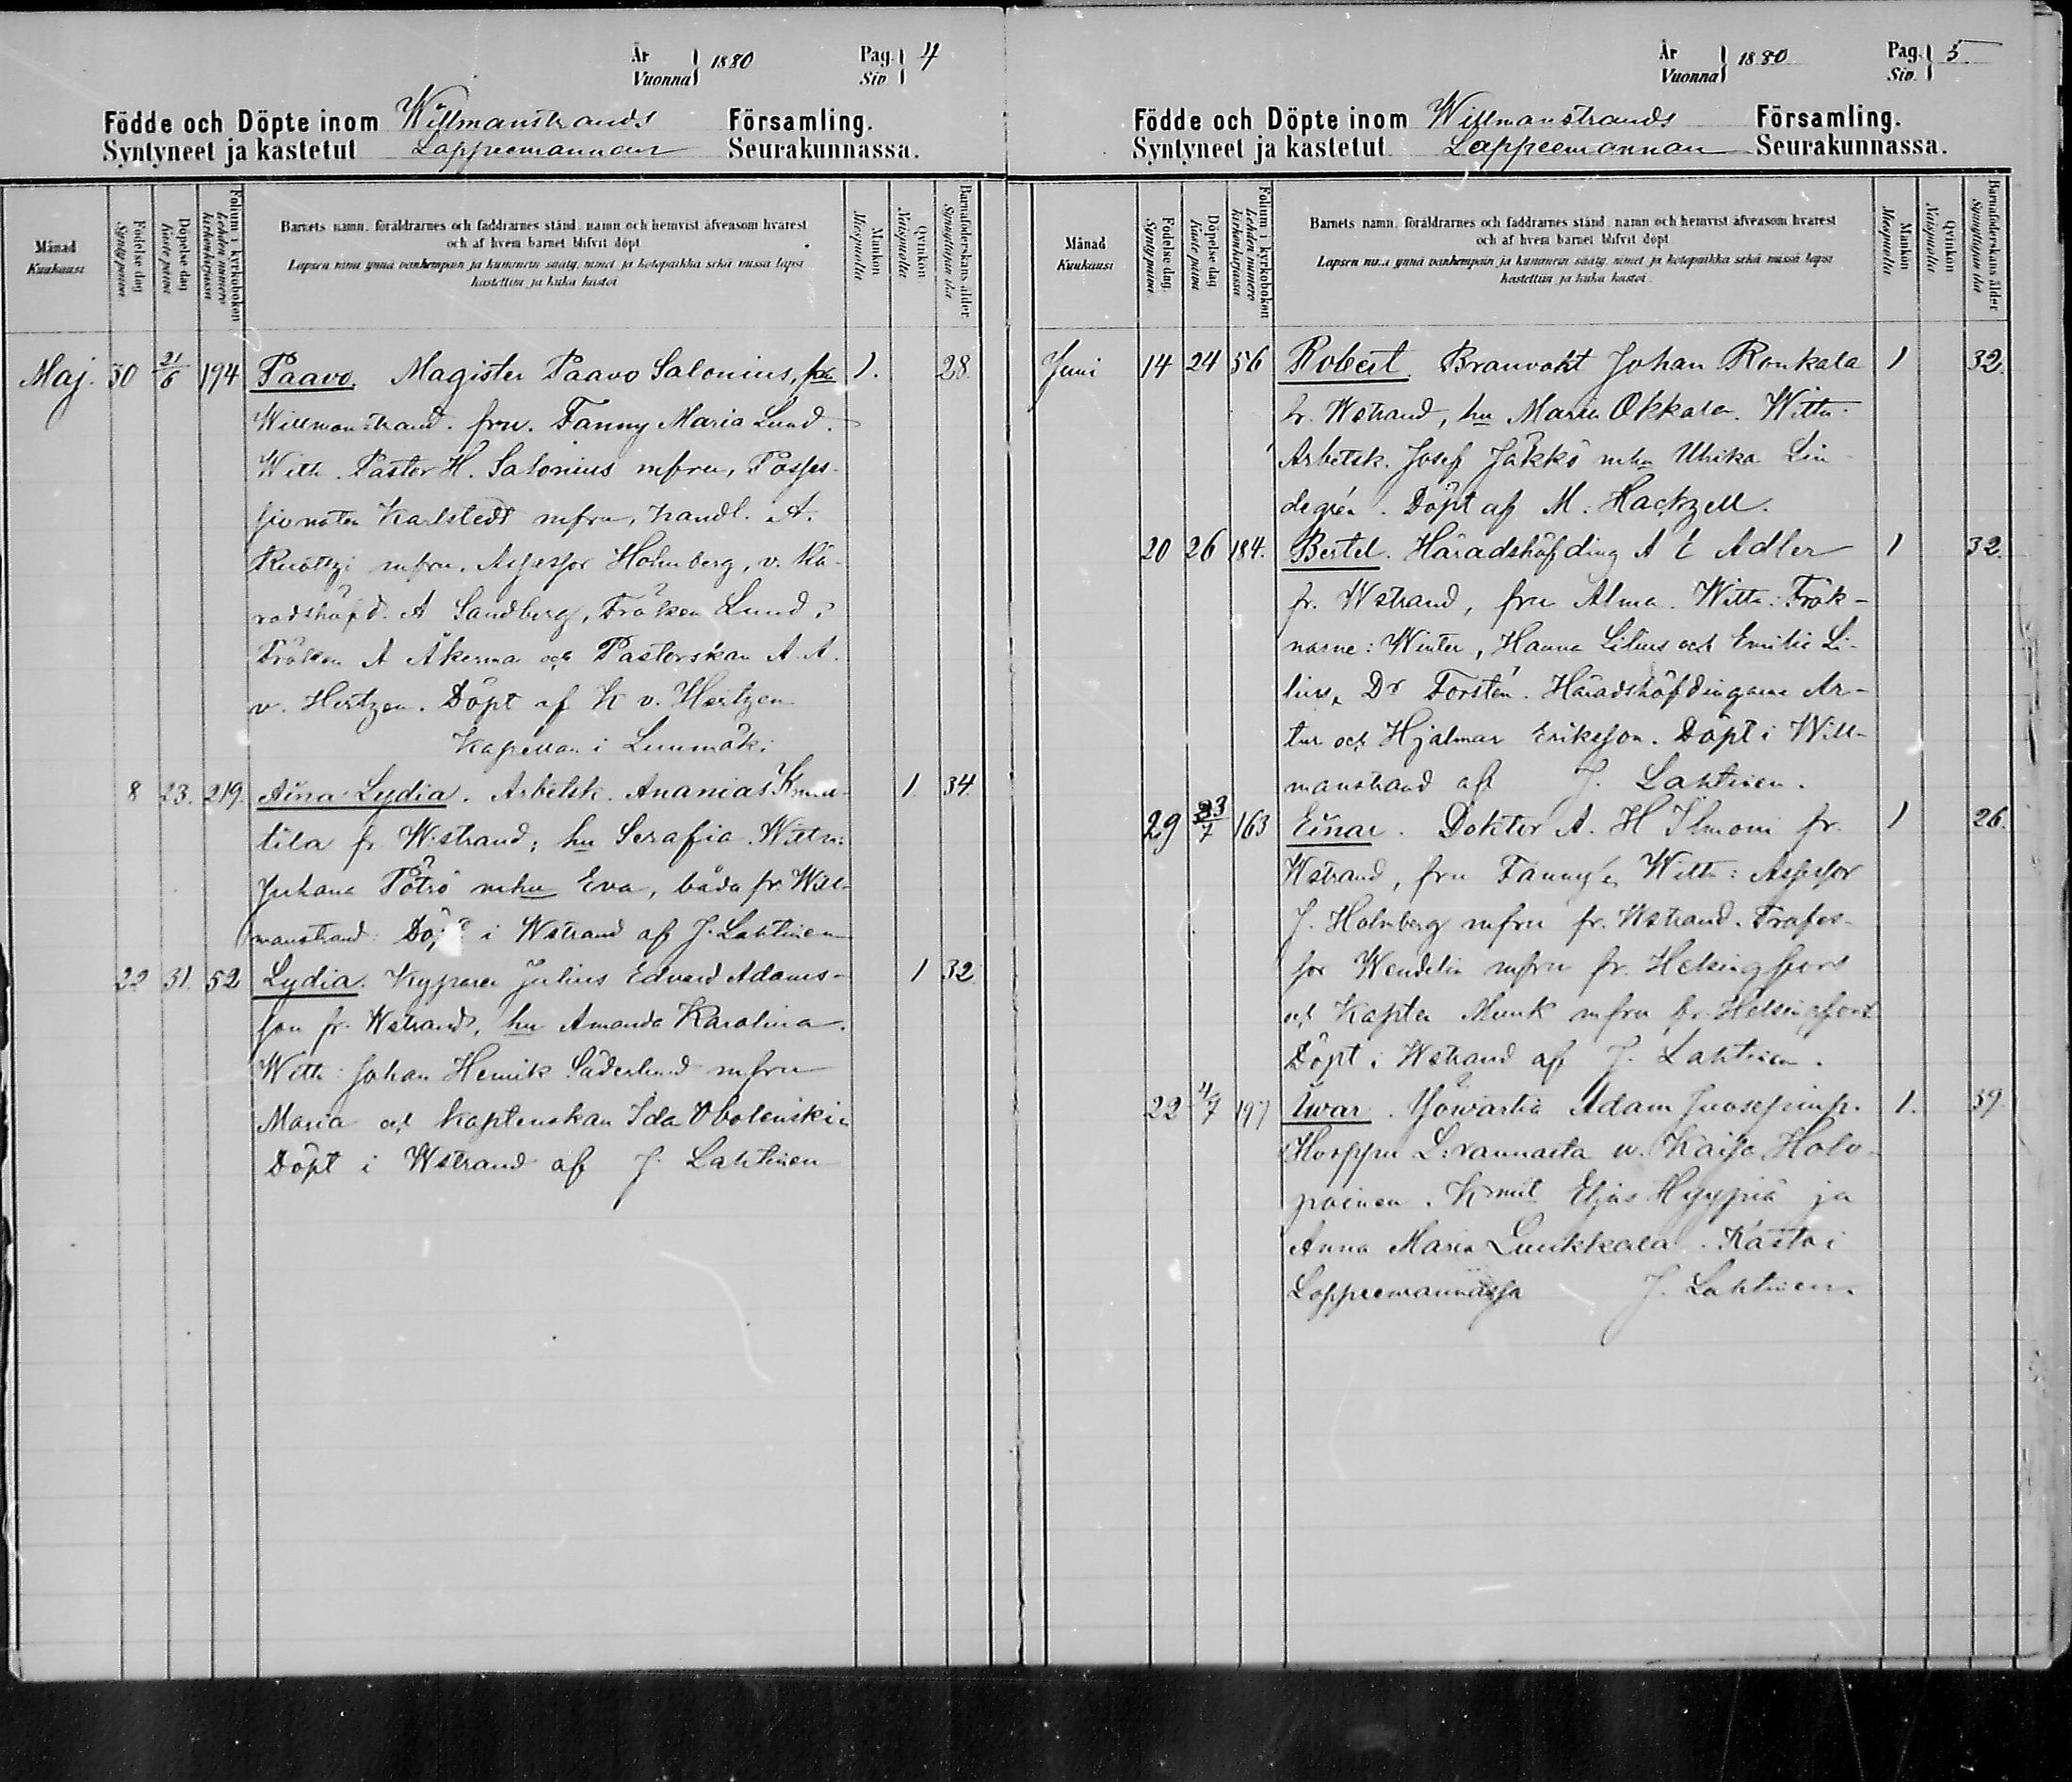 År Vuonna 1880 Pag. Siv. 4
Födde och Döpte inom Willmanstrands Församling.
Syntyneet ja kastetut Lappeemannan Seurakunnassa.
Månad Kuukausi
Födelse dag Synty päivä
Döpelse dag Kaste päivä
Folium i kyrkoboken Lehden numero kirkonkirjassa
Barnets namn, föräldrarnes och faddrarnes stånd, namn och hemvist äfvensom hvarest
och af hvem barnet blifvit döpt
Lapsen nimi ynnä vanhempain ja kummein sääty, nimet ja kotopaikka sekä missä lapsi
kastettiin ja kuka kastoi
Mankön Miespuolia
Qvinkön Naispuolia
Barnaföderskans ålder Synnyttäjän ikä
Maj. 30 21/6 194 Paavo. Magister Paavo Salonius, från 1. 28.
Willmanstrand. fru. Fanny Maria Lund.
Witn. Pastor H. Salonius mfru, Posses-
sionaten Karlstedt mfru, handl. A.
mfru, Assessor Holmberg, v. Hä-
radshöfd. A Sandberg, Fröken Lund,
Fröken A Åkerma och Pastorskan A. A.
v. Hertzen. Döpt af K v. Hertzen
Kapellan i Luumäki
8 23. 219. Aina Lydia. Arbetsk. Ananias 1. 34.
tila fr W:strand; hu Serafia. Wittn:
Juhana Pötrö mhu Eva, båda fr. Will-
manstrand. Döpt i Wstrand af J. Lahtinen
22 31. 52 Lydia. Kyparen Julius Edvard Adams- 1 32.
son fr. Wstrand, hu Amanda Karolina.
Witn: Johan Henrik Söderlund mfru
Maria och Kaptenskan Ida Obolenskin
Döpt i Wstrand af J. Lahtinen
År Vuonna 1880 Pag. Siv. 5.
Födde och Döpte inom Willmanstrands Församling.
Syntyneet ja kastetut Lappeemannan Seurakunnassa.
Månad Kuukausi
Födelse dag Synty päivä
Döpelse dag Kaste päivä
Folium i kyrkoboken Lehden numero kirkonkirjassa
Barnets namn, föräldrarnes och faddrarnes stånd, namn och hemvist äfvensom hvarest
och af hvem barnet blifvit döpt
Lapsen nimi ynnä vanhempain ja kummein sääty, nimet ja kotopaikka sekä missä lapsi
kastettiin ja kuka kastoi
Mankön Miespuolia
Qvinkön Naispuolia
Barnaföderskans ålder Synnyttäjän ikä
Juni 14 24 56 Robert. Branvakt Johan Ronkala 1 32.
fr. Wstrand, hu Maria Okkola. Wittn:
Arbetsk. Josef Jäkkö mhu Ulrika Lin-
degrén. Döpt af M. Hackzell.
20 26 184. Bertel. Häradshöfding A E Adler 1 32.
fr. Wstrand, fru Alma. Wittn: Frök-
narne: Winter, Hanna Lilius och Emilie Li-
lius, Dr Forstén. Häradshöfdingarne Ar-
tur och Hjalmar Eriksson. Döpt i Will-
manstrand af J. Lahtinen.
29 23/7 163 Einar. Doktor A. H Ilmoni fr. 1 26.
Wstrand, fru Fanny. Wittn: Assessor
J. Holmberg mfru fr. Wstrand. Profes-
sor Wendelin mfru fr. Helsingfors
och Kapten Munk mfru fr. Helsingfors
Döpt i Wstrand af J. Lahtinen.
22 4/7 197 Iwar. Yöwartia Adam Juosepinp. 1. 39.
Horppu L:rannasta w. Kaisa Holo-
painen. Kmit Eljas Hyypiä ja
Anna Maria Luukkala. Kastoi
Lappeemannassa J. Lahtinen.